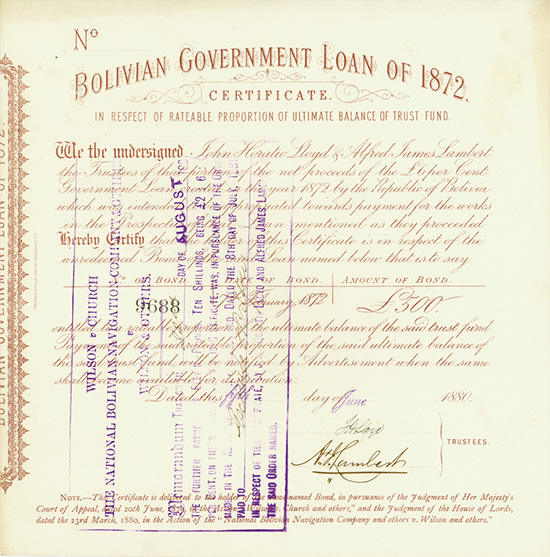 No
BOLIVIAN GOVERNMENT LOAN OF 1872.
CERTIFICATE.
IN RESPECT OF RATEABLE PROPORTION OF ULTIMATE BALANCE OF TRUST FUND.
We the undersigned John Horatio Lloyd & Alfred James Lambert
the Trustees of the net proceeds of the £6 per Cent
Government Loan in the year 1872 to the Republic of Bolivia
which were intended to be appropriated towards payment for the works
in the Prospectus of the Loan mentioned as they proceeded
Hereby Certify that the of this Certificate is in respect of the
unredeemed Bond of the Loan named below that is to say
No OF BOND. DATE OF BOND. AMOUNT OF BOND.
9688 1872 £500
entitled to a rateable proportion of the ultimate balance of the said trust fund.
Payment of the rateable proportion of the said ultimate balance of
the said trust fund will be by Advertisement when the same
shall be available for distribution.
Dated this fifth day of June 1880.
JHLloyd
AJ Lambert
TRUSTEES.
NOTE.—This Certificate is delivered to the holder of the above named Bond, in pursuance of the Judgment of Her Majesty's
Court of Appeal, dated 20th June, in the Action "Wilson v. Church and others," and the Judgment of the House of Lords,
dated the 23rd March, 1880, in the Action of the "National Bolivian Navigation Company and others v. Wilson and others."
BOLIVIAN GOVERNMENT LOAN OF 1872.
WILSON v CHURCH
THE NATIONAL BOLIVIAN NAVIGATION COMPANY
v.
WILSON & OTHERS.
Memorandum that DAY OF AUGUST
THE FURTHER PAYMENT TEN SHILLINGS, BEING £2
PER CENT. ON THE CERTIFICATE WAS, IN PURSUANCE OF THE ORDER
MADE IN THE DATED THE 8TH DAY OF JULY,
PAID TO
IN RESPECT OF THE LLOYD AND ALFRED JAMES LAMBERT
THE SAID ORDER NAMED.